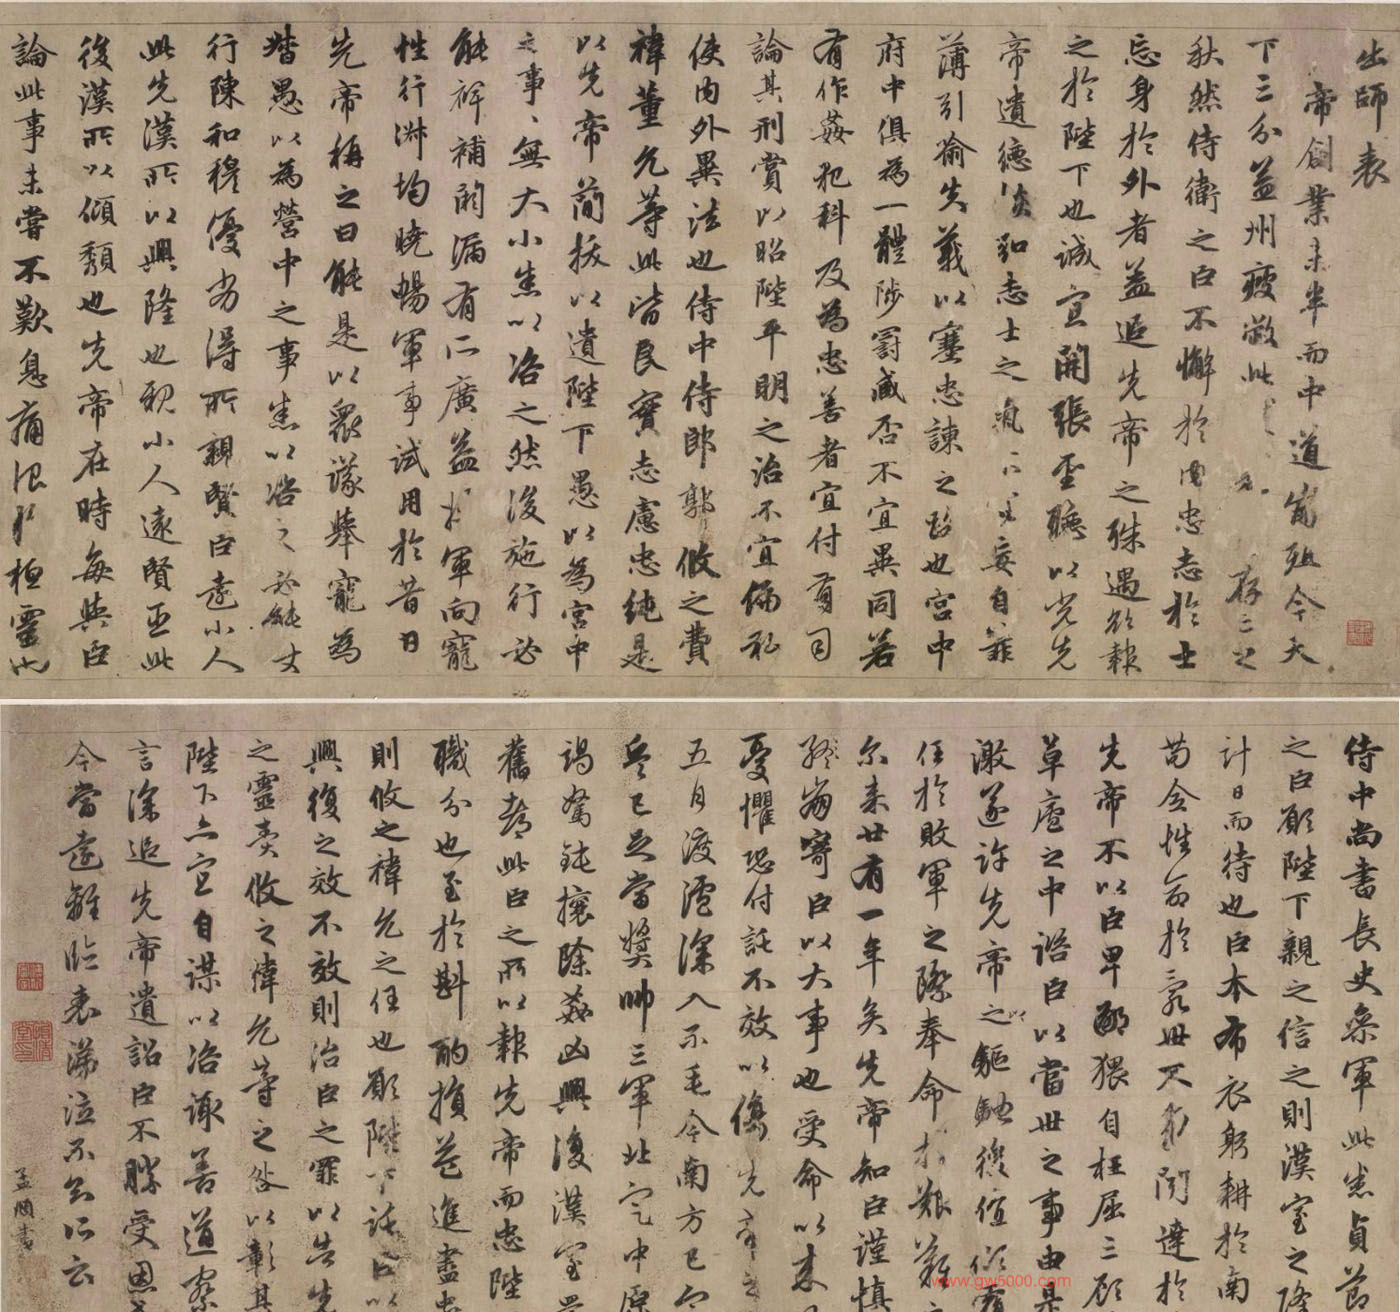 出師表
帝創業未半而中道崩殂今天
下三分益州疲敝此 存亡之
秋然侍衛之臣不懈於内忠志於士
忘身於外者蓋追先帝之殊遇欲報
之於陛下也誠宜開張聖聽以光先
帝遺德恢弘志士之氣不宜妄自菲
薄引喻失義以塞忠諫之路也宮中
府中俱為一體陟罰臧否不宜異同若
有作姦犯科及為忠善者宜付有司
論其刑賞以昭陛平明之治不宜偏私
使内外異法也侍中侍郎郭攸之費
禕董允等此皆良實志慮忠純是
以先帝簡拔以遺陛下愚以為宮中
之事、無大小悉以咨之然後施行必
能裨補闕漏有所廣益將軍向寵
性行淑均曉暢軍事試用於昔日
先帝稱之曰能是以眾議舉寵為
督愚以為營中之事悉以咨之必能使
行陳和穆優劣得所親賢臣遠小人
此先漢所以興隆也親小人遠賢臣此
後漢所以傾頹也先帝在時每與臣
論此事未嘗不歎息痛恨於桓靈也
侍中尚書長史參軍此悉貞節
之臣願陛下親之信之則漢室之隆
計日而待也臣本布衣躬耕於南
苟全性命於亂世不求聞達於
先帝不以臣卑鄙猥自枉屈三顧
草廬之中諮臣以當世之事由是
激遂許先帝之以驅馳後值傾覆
任於敗軍之際奉命於艱難
尔来廿有一年矣先帝知臣謹慎
臨崩寄臣以大事也受命以来
憂懼恐付託不效以傷先帝之
五月渡瀘深入不毛今南方已定
兵已足當獎帥三軍北定中原
竭駑鈍攘除姦凶興復漢室
舊都此臣之所以報先帝而忠陛
職分也至於斟酌損益進盡忠
則攸之禕允之任也願陛下託臣以
興復之效不效則治臣之罪以告先
之靈責攸之禕允等之咎以彰其
陛下亦宜自謀以咨諏善道察
言深追先帝遺詔臣不勝受恩
今當遠離臨表涕泣不知所云
孟頫書
www.gw5000.com